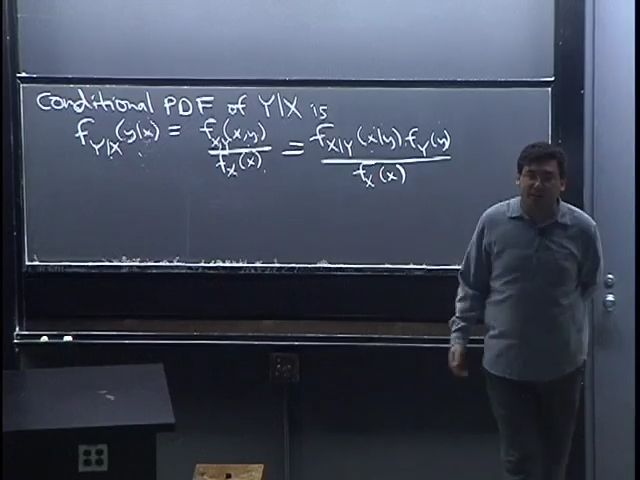 Conditional PDF of Y|X is
f_{Y|X}(y|x) = \frac{f_{X,Y}(x,y)}{f_X(x)} = \frac{f_{X|Y}(x|y) \cdot f_Y(y)}{f_X(x)}